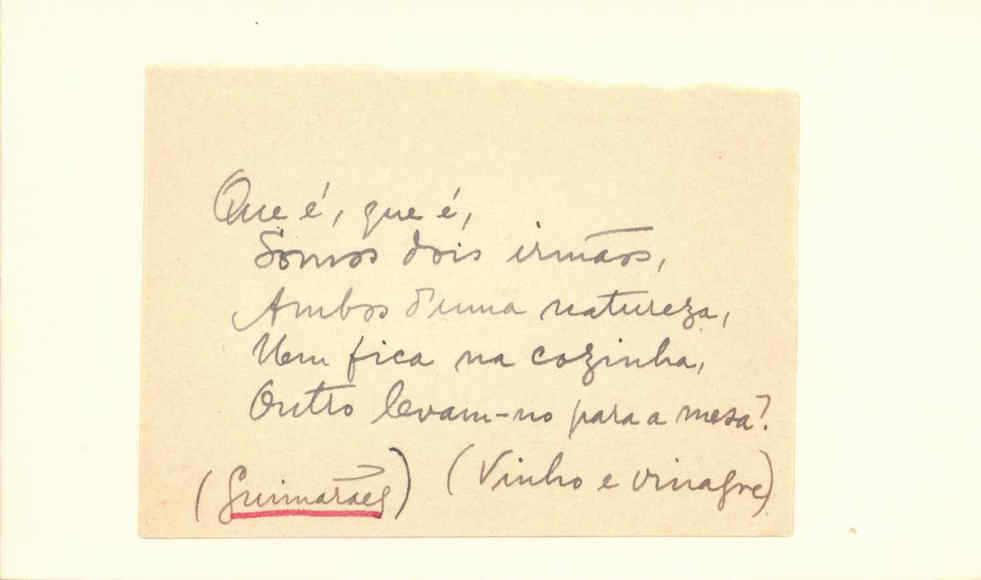 Que é, que é,
Somos dois irmãos,
Ambos d'uma natureza,
Um fica na cozinha,
Outro levam-no para a mesa?
(Guimarães) (Vinho e vinagre)